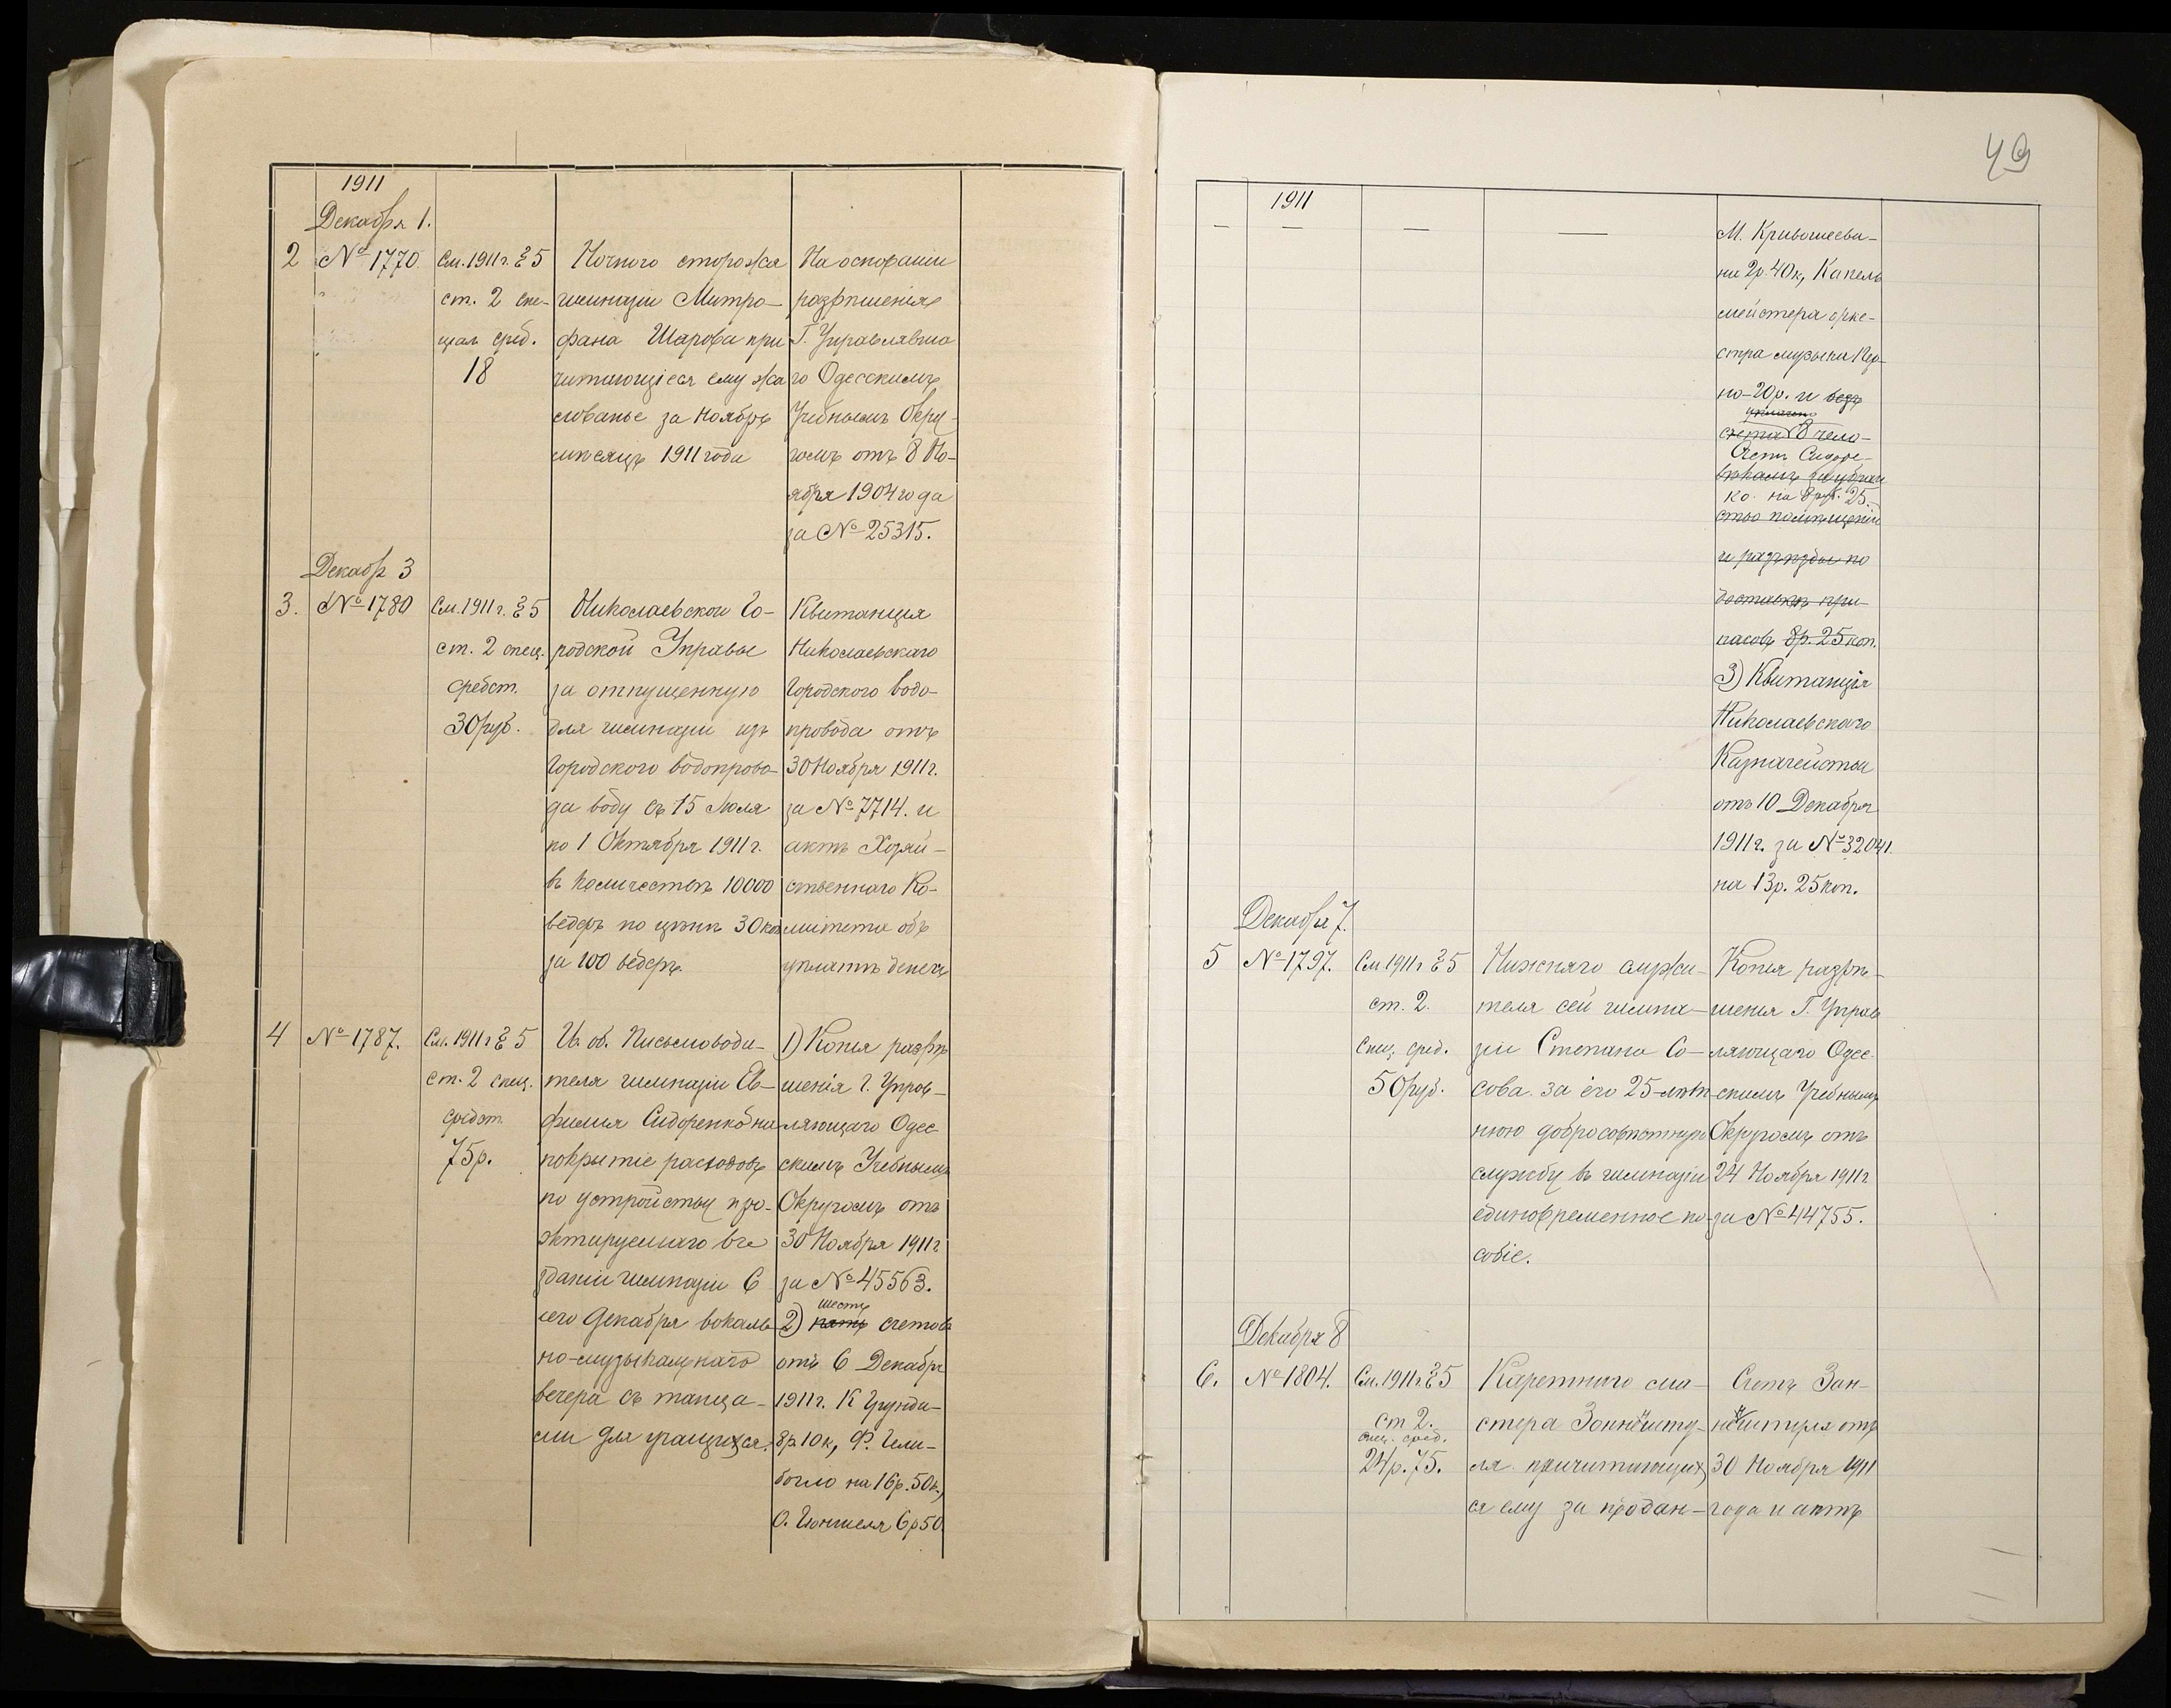 1911
Декабря 1.
2
№ 1770.
См. 1911 г. § 5
ст. 2 спе-
циал. сред.
18
Ночного сторожа
гимназіи Митро-
фана Шарова при
читающіеся ему жа
лованье за Ноябрь
мѣсяцъ 1911 года
На основаніи
разрѣшенія
Г. Управлявша
го Одесскимъ
Учебнымъ Окру-
гомъ отъ 8 Но-
ября 1904 года
за № 25315.
Декабр 3
3.
№ 1780
См. 1911 г. § 5
ст. 2 спец.
средст.
30 руб.
Николаевской Го-
родской Управѣ
за отпущенную
для гимназіи изъ
Городского водопрово-
да воду съ 15 Июля
по 1 Октября 1911 г.
въ количествѣ 10000
ведеръ по цѣнѣ 30 коп
за 100 ведеръ.
Квитанция
Николаевскаго
Городского водо-
провода отъ
30 Ноября 1911 г.
за № 7714. и
актъ Хозяй-
ственнаго Ко-
митета объ
уплатѣ денегъ
4
№ 1787.
См. 1911 г § 5
ст. 2 спец.
средст.
75 р.
И. об. Письмоводи-
теля гимназіи Ев-
фимия Сидоренко на
покрытіе расходовъ
по устройству про-
эктируемаго въ
зданіи гимназіи 6
сего Декабря вокаль
но-музыкальнаго
вечера съ танца-
ми для учащихся.
1) Копія разрѣ
шенія г. Управ-
ляющаго Одес
скимъ Учебнымъ
Округомъ отъ
30 Ноября 1911 г
за № 45563.
шесть
2) пять счетовъ
отъ 6 Декабря
1911 г. К
8 р. 10 к, Ф.
на 16 р. 50 к,
О. 6 р 50
49
1911
— — — —
М. Кривошееви-
ни 2 р. 40 к, Капель
мейстера орке-
стра музыки
но - 20 р. и
уплачено
счета 8 чело-
Счетъ Сидоре-
вѣкамъ за убран
ко. на 8 руб. 25.
ство помѣщеній
и разъѣзды по
доставкѣ при-
пасовъ 8 р. 25 коп.
3) Квитанція
Николаевскаго
Казначейства
отъ 10 Декабря
1911 г. за № 32041.
на 13 р. 25 коп.
Декабря 7.
5
№ 1797.
См 1911 г § 5
ст. 2.
Спец. сред.
50 руб.
Нижняго служи-
теля сей гимна-
зіи Степана Со-
сова. за его 25-лѣт
нюю добросовѣстную
службу въ гимназіи
единовременное по-
собіе.
Копія разрѣ-
шенія Г. Управ
ляющаго Одес
скимъ Учебнымъ
Округомъ отъ
24 Ноября 1911 г
за № 44755.
Декабря 8
6.
№ 1804.
См. 1911 г. § 5
ст 2.
спец. сред.
24 р. 75.
Каретнаго ма-
стера
ля причитающих
ся ему за продан-
Счетъ Зон-
отъ
30 Ноября 1911
года и актъ